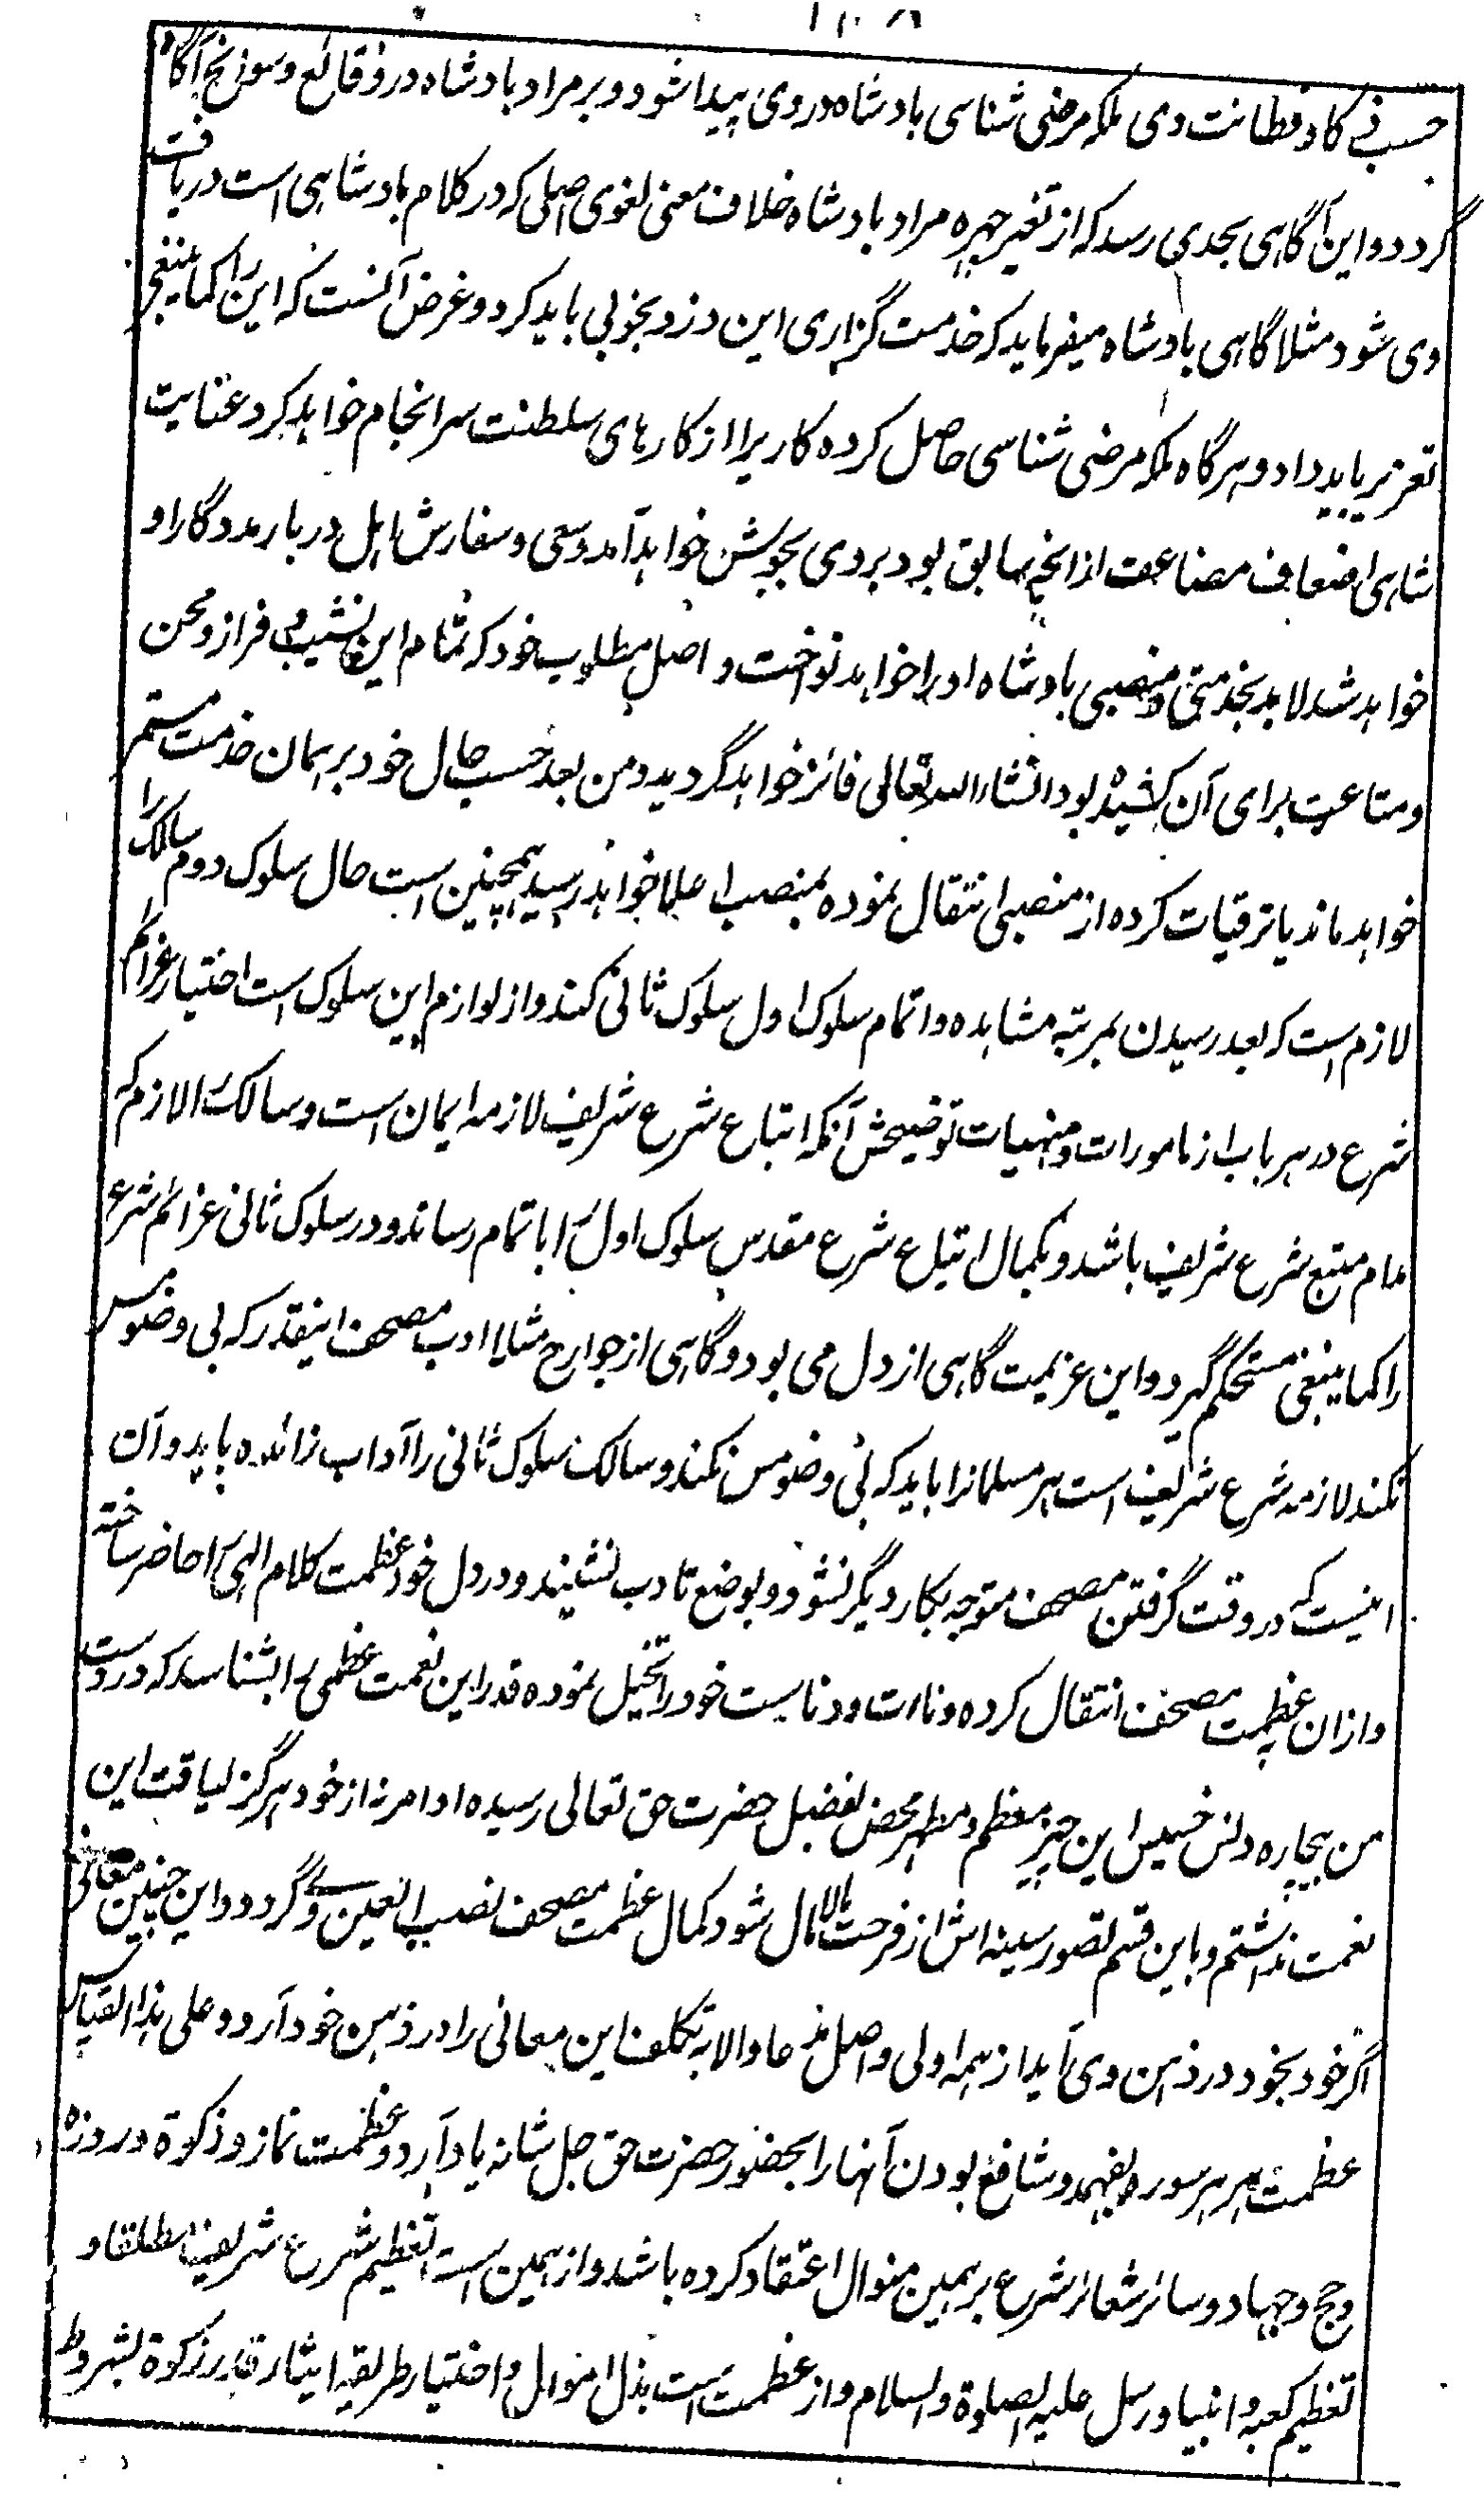 ۱۰۸
حسب ذکا و فطانت وی ملکه مرضی شناسی بادشاه در وی پیدا شود و بر مراد بادشاه در وقائع و سوانح آگاه
گردد و این آگاهی بحدی رسد که از تغیر چهره مراد بادشاه خلاف معنی لغوی اصلی که در کلام بادشاهی است دریافت
وی شود مثلا گاهی بادشاه میفرماید که خدمت گزاری این دزد بخوبی باید کرد و غرض آنست که این را کما ینبغی
تعزیر باید داد و هرگاه ملکه مرضی شناسی حاصل کرده کاریرا از کارهای سلطنت سرانجام خواهد کرد عنایت
شاهی اضعاف مضاعف از آنچه سابق بود بر وی بجوشش خواهد آمد و سعی و سفارش اهل دربار مددگار او
خواهد شد لابد بخدمتی و منصبی بادشاه او را خواهد نواخت و اصل مطلوب خود که تمام این نشیب و فراز و محن
و متاعب برای آن کشیده بود انشاء الله تعالی فائز خواهد گردید و من بعد حسب حال خود بر همان خدمت مستمر
خواهد ماند یا ترقیات کرده از منصبی انتقال نموده بمنصب اعلا خواهد رسید همچنین است حال سلوک دوم سالک را
لازم است که بعد رسیدن بمرتبه مشاهده و اتمام سلوک اول سلوک ثانی کند و از لوازم این سلوک است اختیار عزائم
شرع در هر باب از مامورات و منهیات توضیحش آنکه اتباع شرع شریف لازمه ایمان است و سالک را لازم که
مدام متبع شرع شریف باشد و بکمال اتباع شرع مقدس سلوک اول را باتمام رساند و در سلوک ثانی عزائم شرع
را کما ینبغی مستحکم گیرد و این عزیمت گاهی از دل می بود و گاهی از جوارح مثلا ادب مصحف اینقدر که بی وضو مس
نکند لازمه شرع شریف است هر مسلمانرا باید که بی وضو مس نکند و سالک سلوک ثانی را آداب زائده باید و آن
اینست که در وقت گرفتن مصحف متوجه بکار دیگر نشود و بوضع تادب نشیند و در دل خود عظمت کلام الهی را حاضر ساخته
و ازان عظمت مصحف انتقال کرده دنائت و دناست خود را تخیل نموده قدر این نعمت عظمی را بشناسد که در دست
من بیچاره دنس خسیس این چیز معظم و مطهر محض بفضل حضرت حق تعالی رسیده او امر نه از خود هرگز لیاقت این
نعمت نداشتم و باین قسم تصور سینه اش از فرحت مالامال شود و کمال عظمت مصحف نصب العین وی گردد و این چنین معانی
اگر خود بخود در ذهن وی آید از همه اولی و اصل مدعا والا به تکلف این معانی را در ذهن خود آرد و علی هذا القیاس
عظمت هر هر سوره بفهمد و شافع بودن آنها را بحضور حضرت حق جل شانه یاد آرد و عظمت نماز و زکوة و روزه
و حج و جهاد و سائر شعائر شرع بر همین منوال اعتقاد کرده باشد و از همین است تعظیم شرع شریف مطلقا و
تعظیم کعبه و انبیا و رسل علیه الصلوة والسلام و از عظمت است بذل اموال و اختیار طریقه ایثار قدر زکوة بشروط